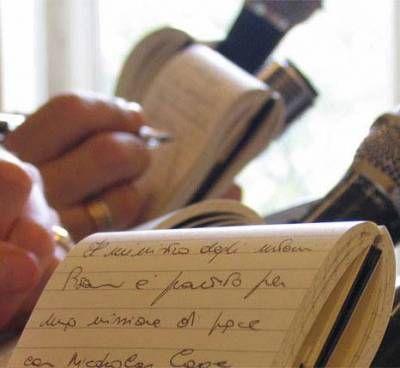 Il ministro degli interni
Brown è partito per
una missione di pace
con Nicholas Cage